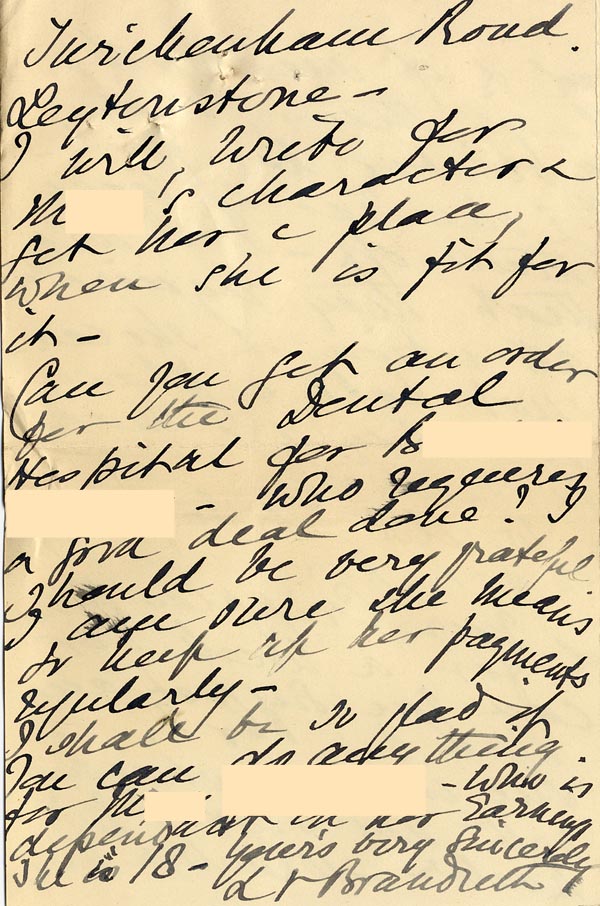 Twickenham Road.
Leytonstone -
I will, write for
M 's character &
get her a place,
when she is fit for
it -
Can you get an order
for the Dental
Hospital for B
- who requires
a good deal done? I
should be very grateful
I am sure she means
to keep up her payments
regularly -
I shall be so glad if
you can do anything
for M - who is
dependent on her Earnings
She is 18 - Yours very Sincerely
Brandreth